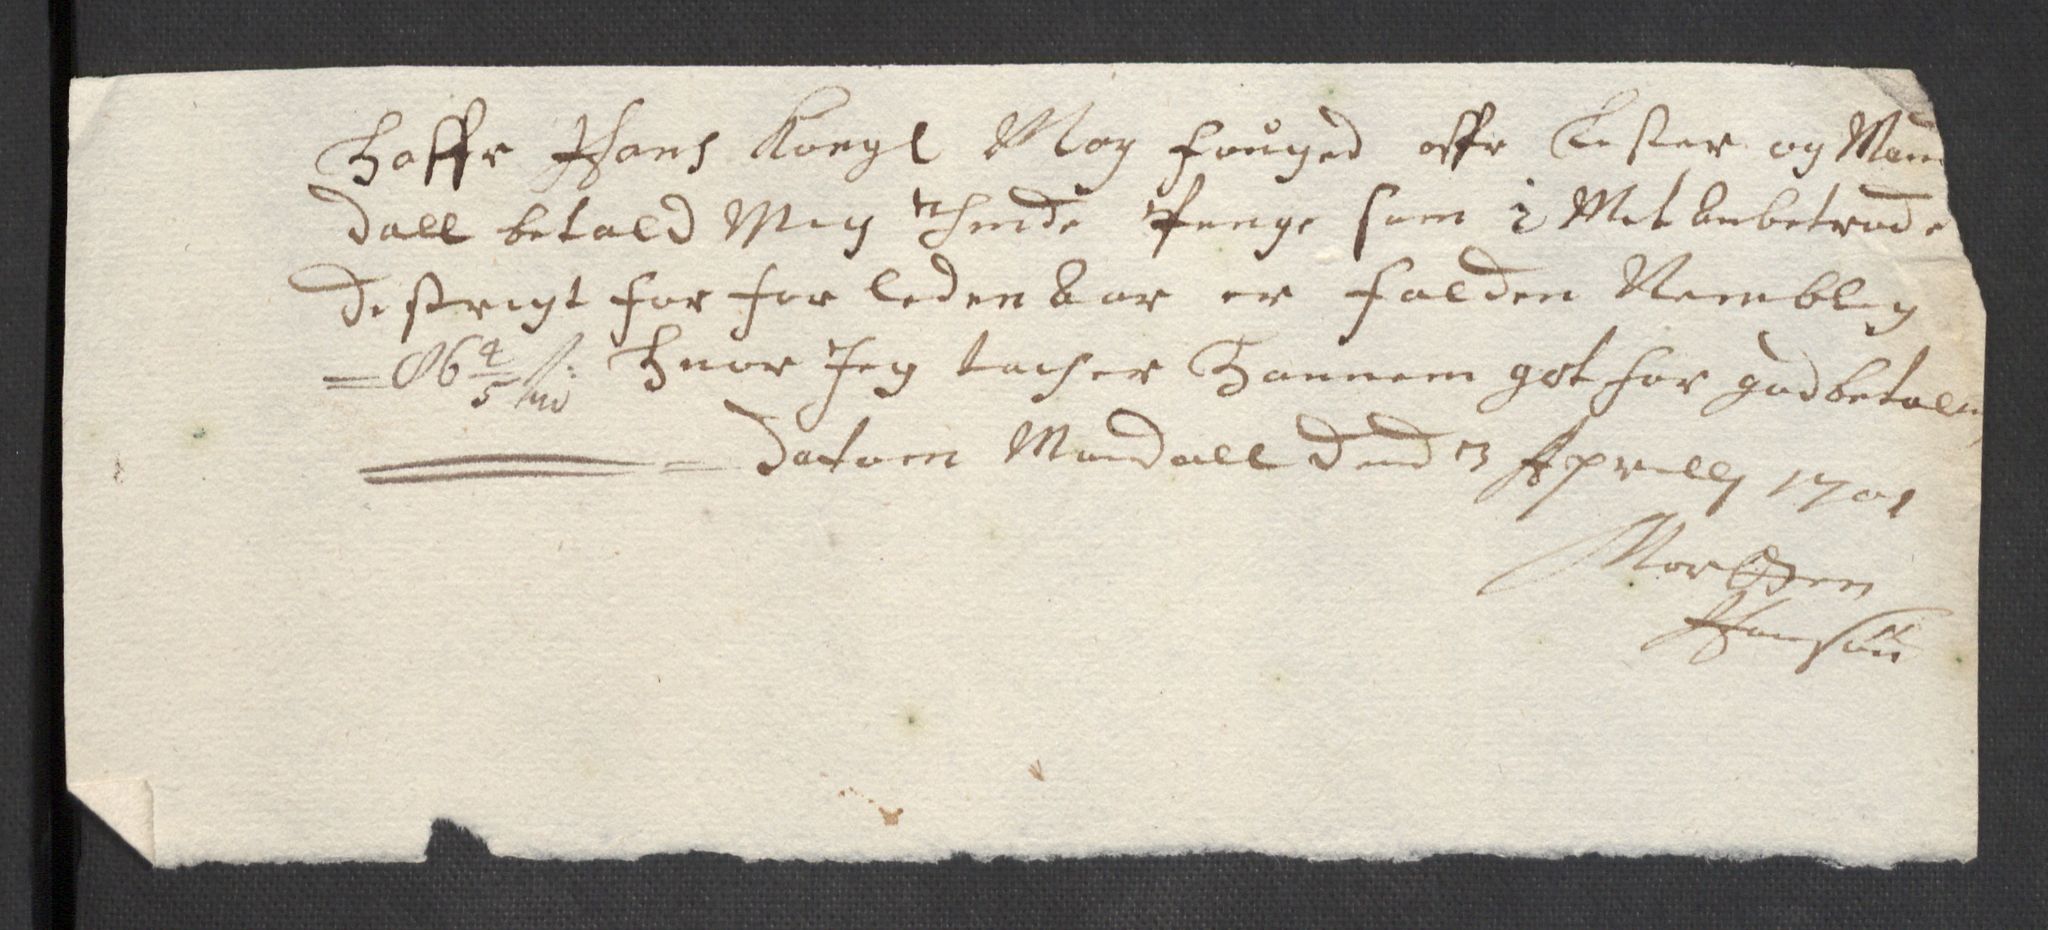 Haffr Hans Kongl May fouged offr Lister og Man
dall betald Mig Thinde Penge som i Mit anbetrode
destrigt for for leden Aar er falden Nemblig
= 86 4/5 huor Jeg tacher Hannem got for god betaling
= datom Mandall dend 3 Aprilly 1701
Mortten
Hansøn